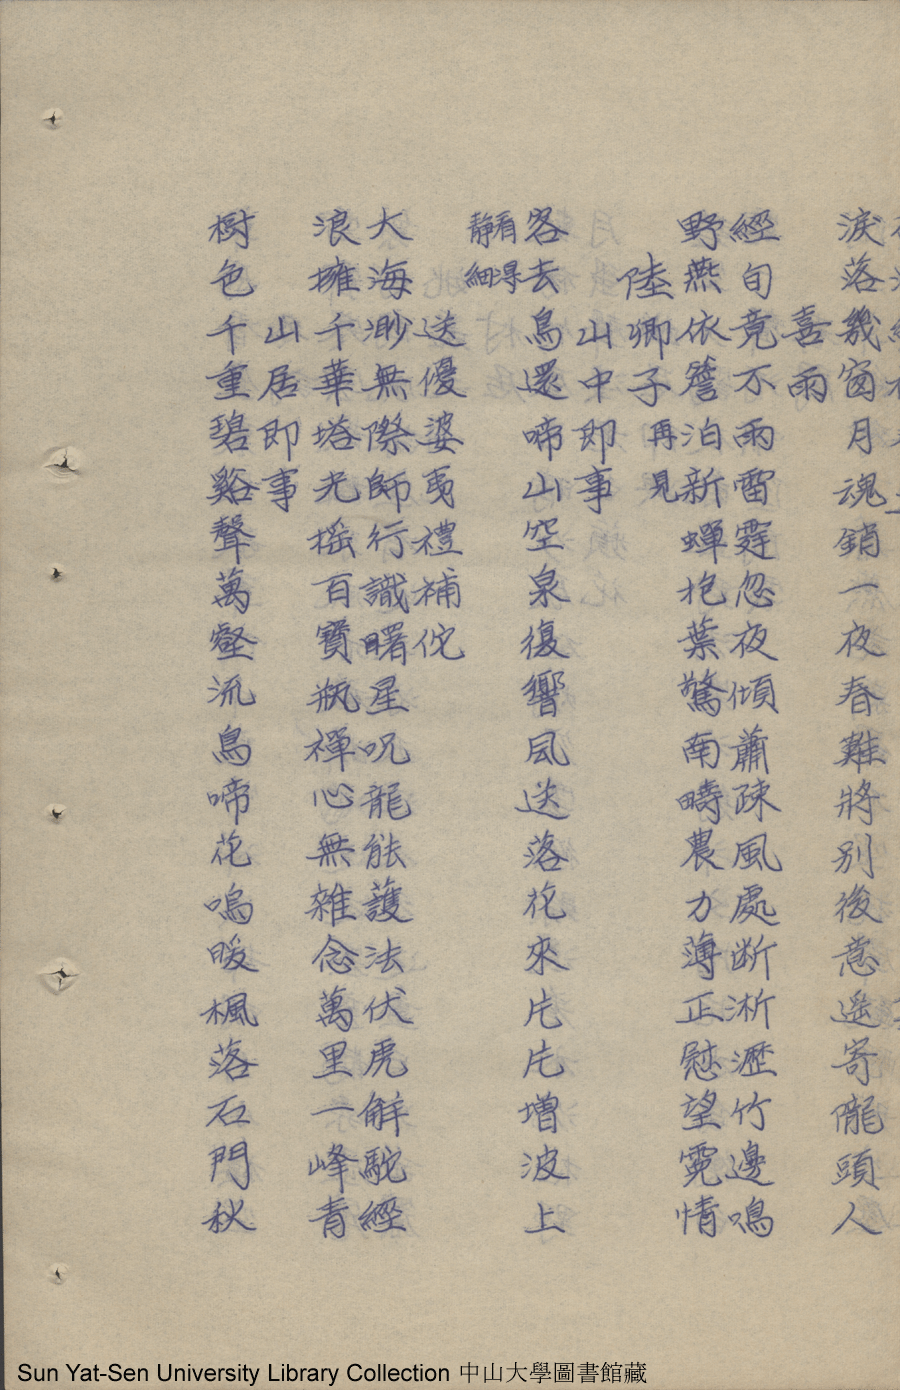 淚落幾窗月魂銷一夜春難將別後意遥寄隴頭人
喜雨
經旬竟不雨雷霆忽夜傾蕭疎風處断淅瀝竹邊鳴
野燕依簷泊新蟬抱葉驚南疇農力薄正慰望霓情
陸卿子再見
山中即事
客去鳥還啼山空泉復響風送落花來片片增波上
看得
靜細
送優婆夷禮補佗
大海渺無際師行識曙星呪龍能護法伏虎解馱經
浪擁千華塔光搖百寶瓶禪心無雜念萬里一峰青
山居即事
樹色千重碧谿聲萬壑流鳥啼花嶋暖楓落石門秋
Sun Yat-Sen University Library Collection 中山大學圖書館藏